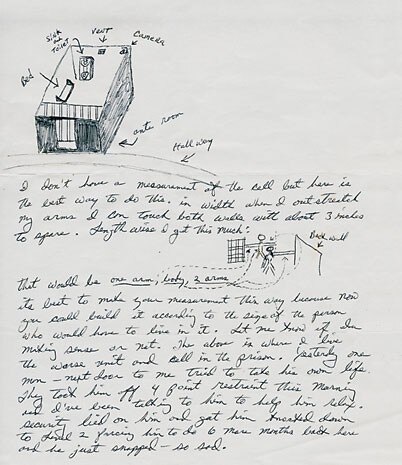 Sink and toilet
Vent
Camera
Bed
ante room
Hallway
I don't have a measurement of the cell but here is
the best way to do this. in width when I out stretch
my arms I can touch both walls with about 3 inches
to spare. Lengthwise I get this much:
Back wall
That would be one arm, body, 2 arms
its best to make your measurement this way because now
you could build it according to the size of the person
who would have to live in it. Let me know if Im
making sense or not. The above is where I live
the worse unit and cell in the prison. Yesterday one
man – next door to me tried to take his own life.
They took him off 4 point restraint this morning
and I've been talking to him to help him relax.
security lied on him and got him knocked down
to level 2 forcing him to do 6 more months back here
and he just snapped – so sad.